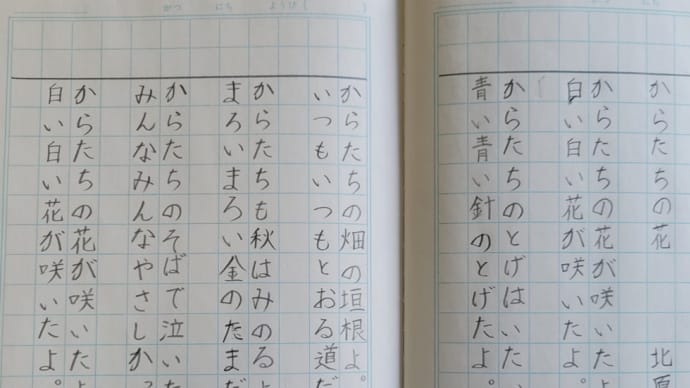 がつ にち ようび ( )
からたちの花 北原
からたちの花が咲いたよ
白い白い花が咲いたよ。
からたちのとげはいた
青い青い針のとげだよ。
からたちの畑の垣根よ。
いつもいつもとおる道だ
からたちも秋はみのるよ
まろいまろい金のたまだ
からたちのそばで泣いた
みんなみんなやさしか
からたちの花が咲いたよ
白い白い花が咲いたよ。